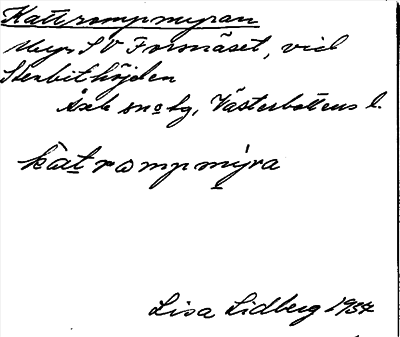 Kattrompmyran
Myr SV Forsnäset, vid
Stenbithöjden
Åsele sn o hg, Västerbottens l.
kat rompmýra
Lisa Lidberg 1934